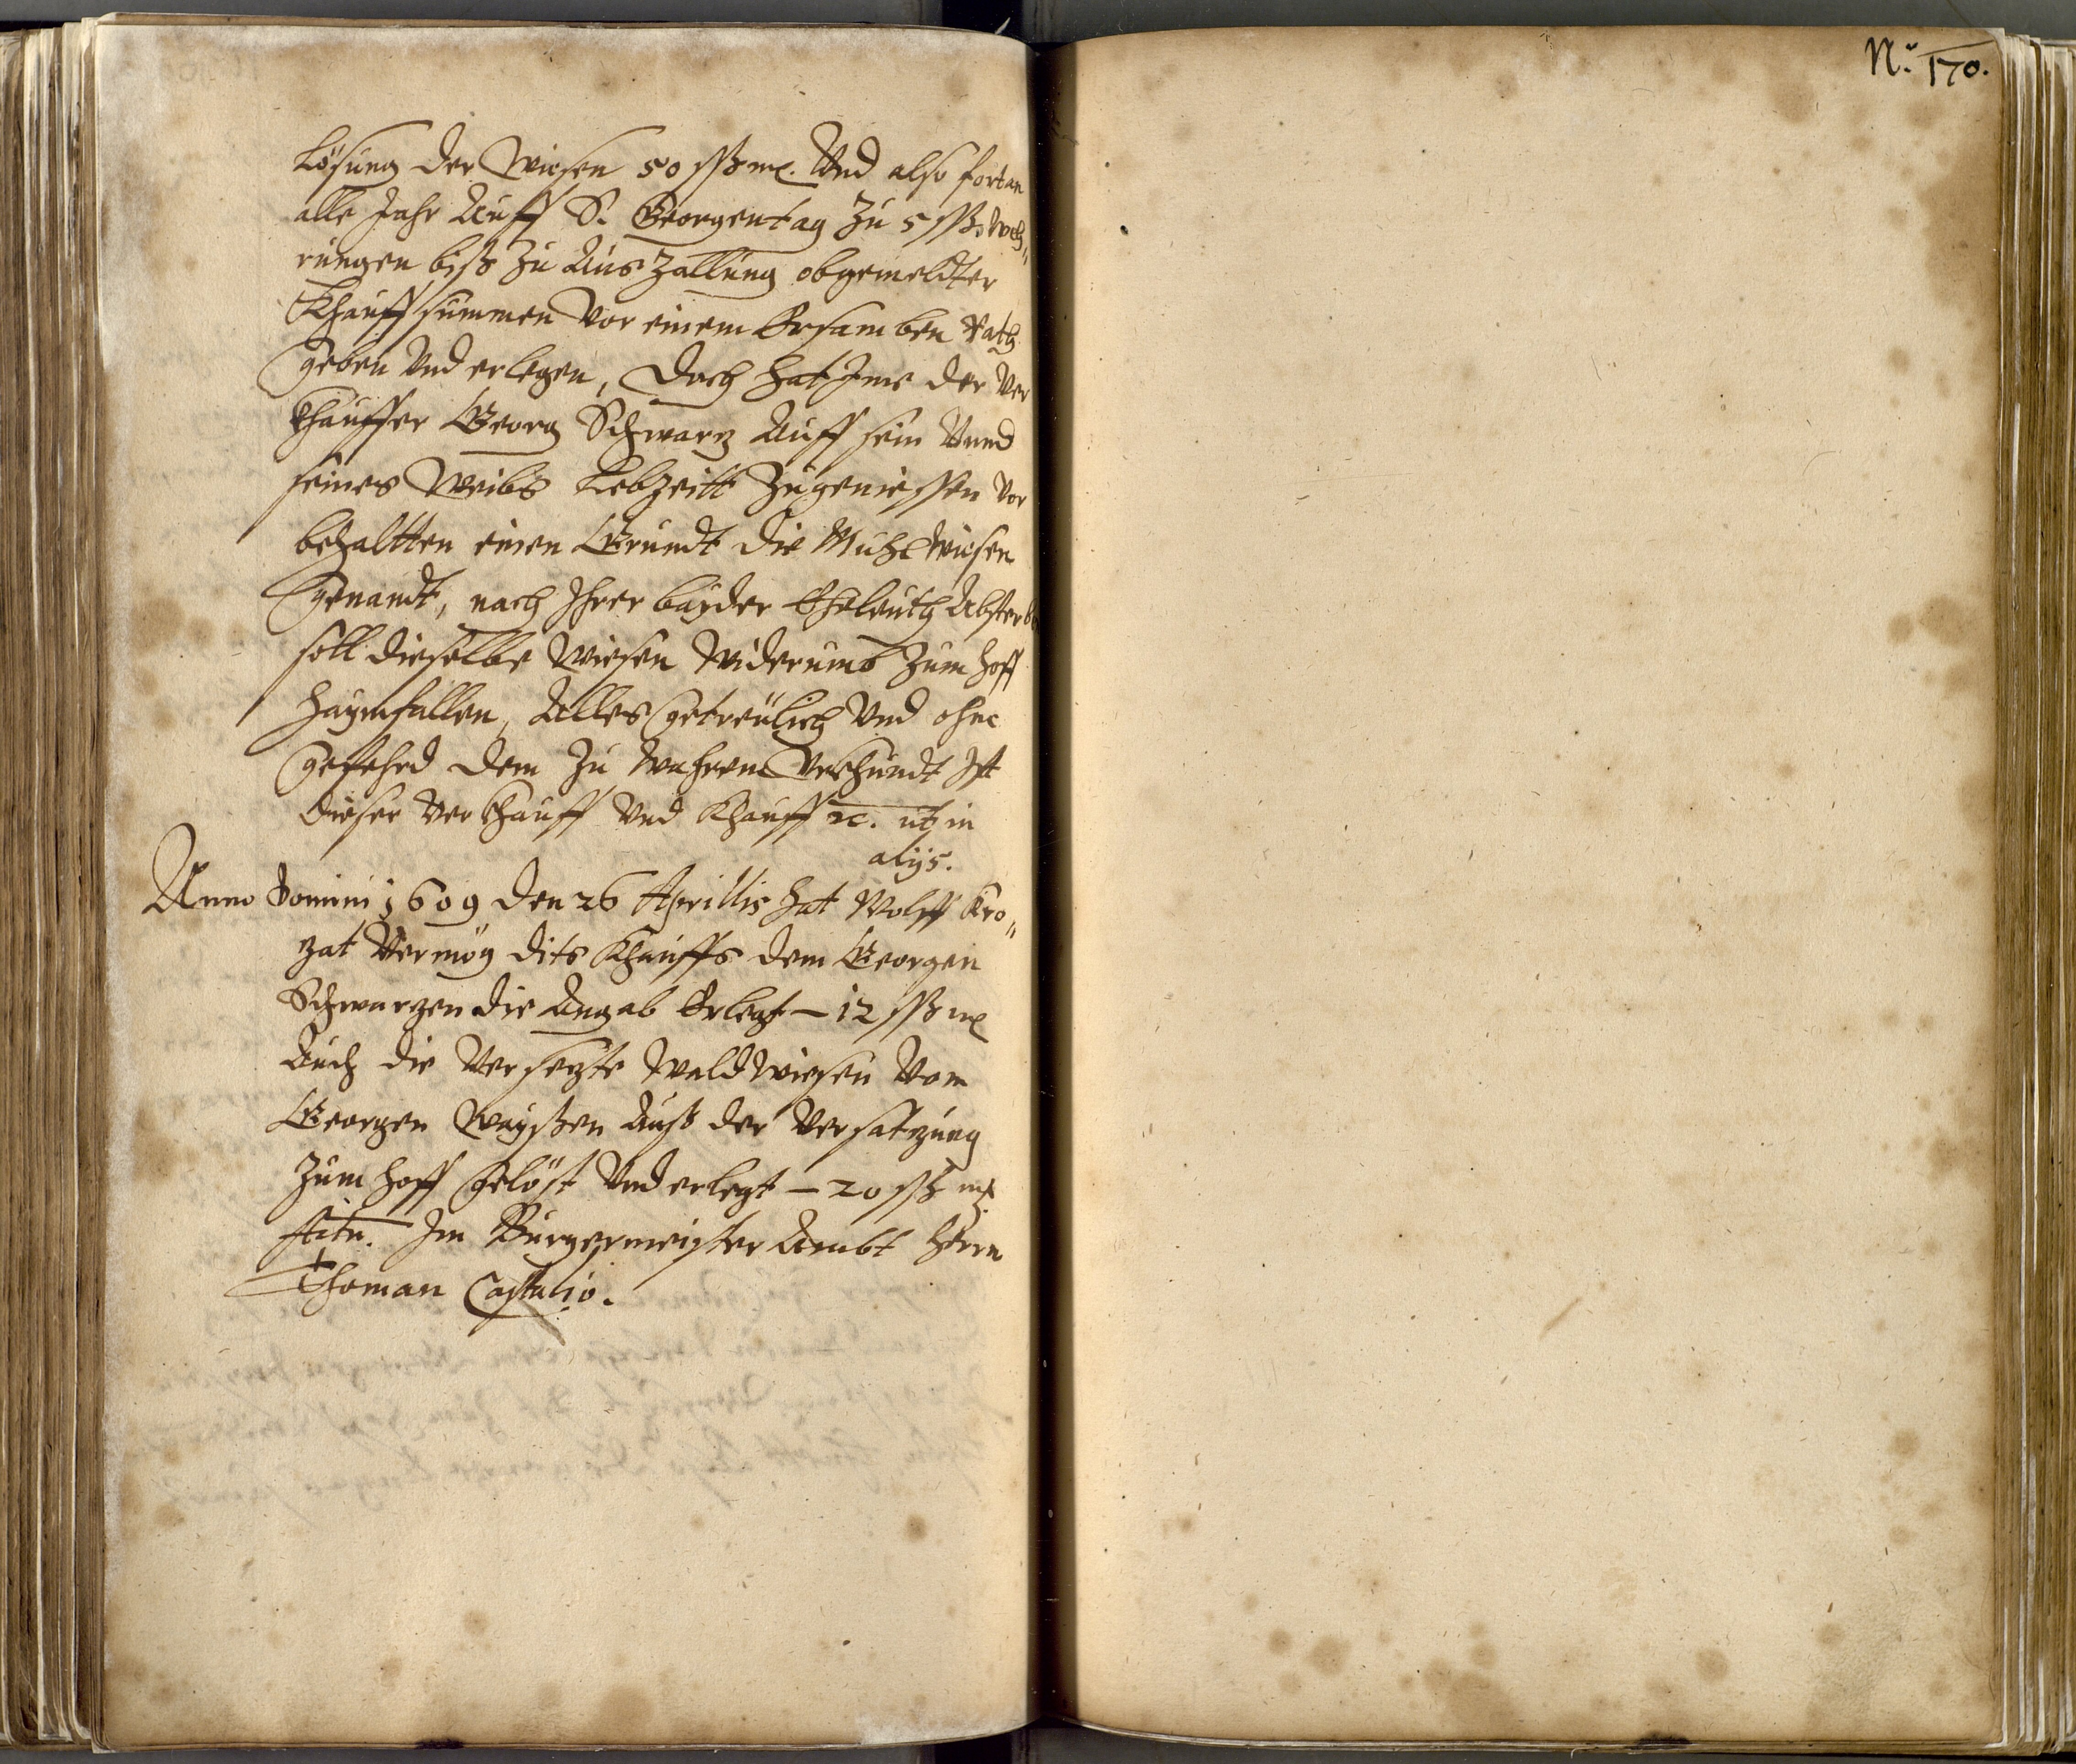 Lösung der Wiesen 50 ßß mß. Und also fortan
alle Jahr Auff S. Georgentag Zu 5 ßß. Weh„
rungen biß Zu Aus Zallung obgemeldter
Khauffsummen Vor einem Ersamben Rath
geben Vnd erlegen, Doch hat Ime der Ver
khauffer Georg Schwarz Auff sein Vnnd
seines Weibs Lebzeitt Zugeniessen Vor
behaltten einen Grundt die Muhl Wiesen
genandt, nach Ihrer bayder Eheleuth Abster
soll dieselbe Wiesen Widerumb Zum Hoff
haymfallen, Alles getreülich Vnd ohne
gefehrd dem Zu Wahren Vrkhundt Ist
dieser Verkhauff Vnd Khauff ꝛc. ut in
alijs.
Anno Domini 1609 den 26 Aprillis hat Wolff Kro„
zat Vermög dits Khauffs dem Georgen
Schwarzen die Angab Erlegt – 12 ßß mß
Auch die Versezte Waldwiesen Vom
Georgen Wayßen Auß der Versatzung
Zum Hoff gelöst Vnd erlegt – 20 ßß mß.
Actu. Im Burgermeister Ambt Herrn
Thoman Castulio.
No. 170.